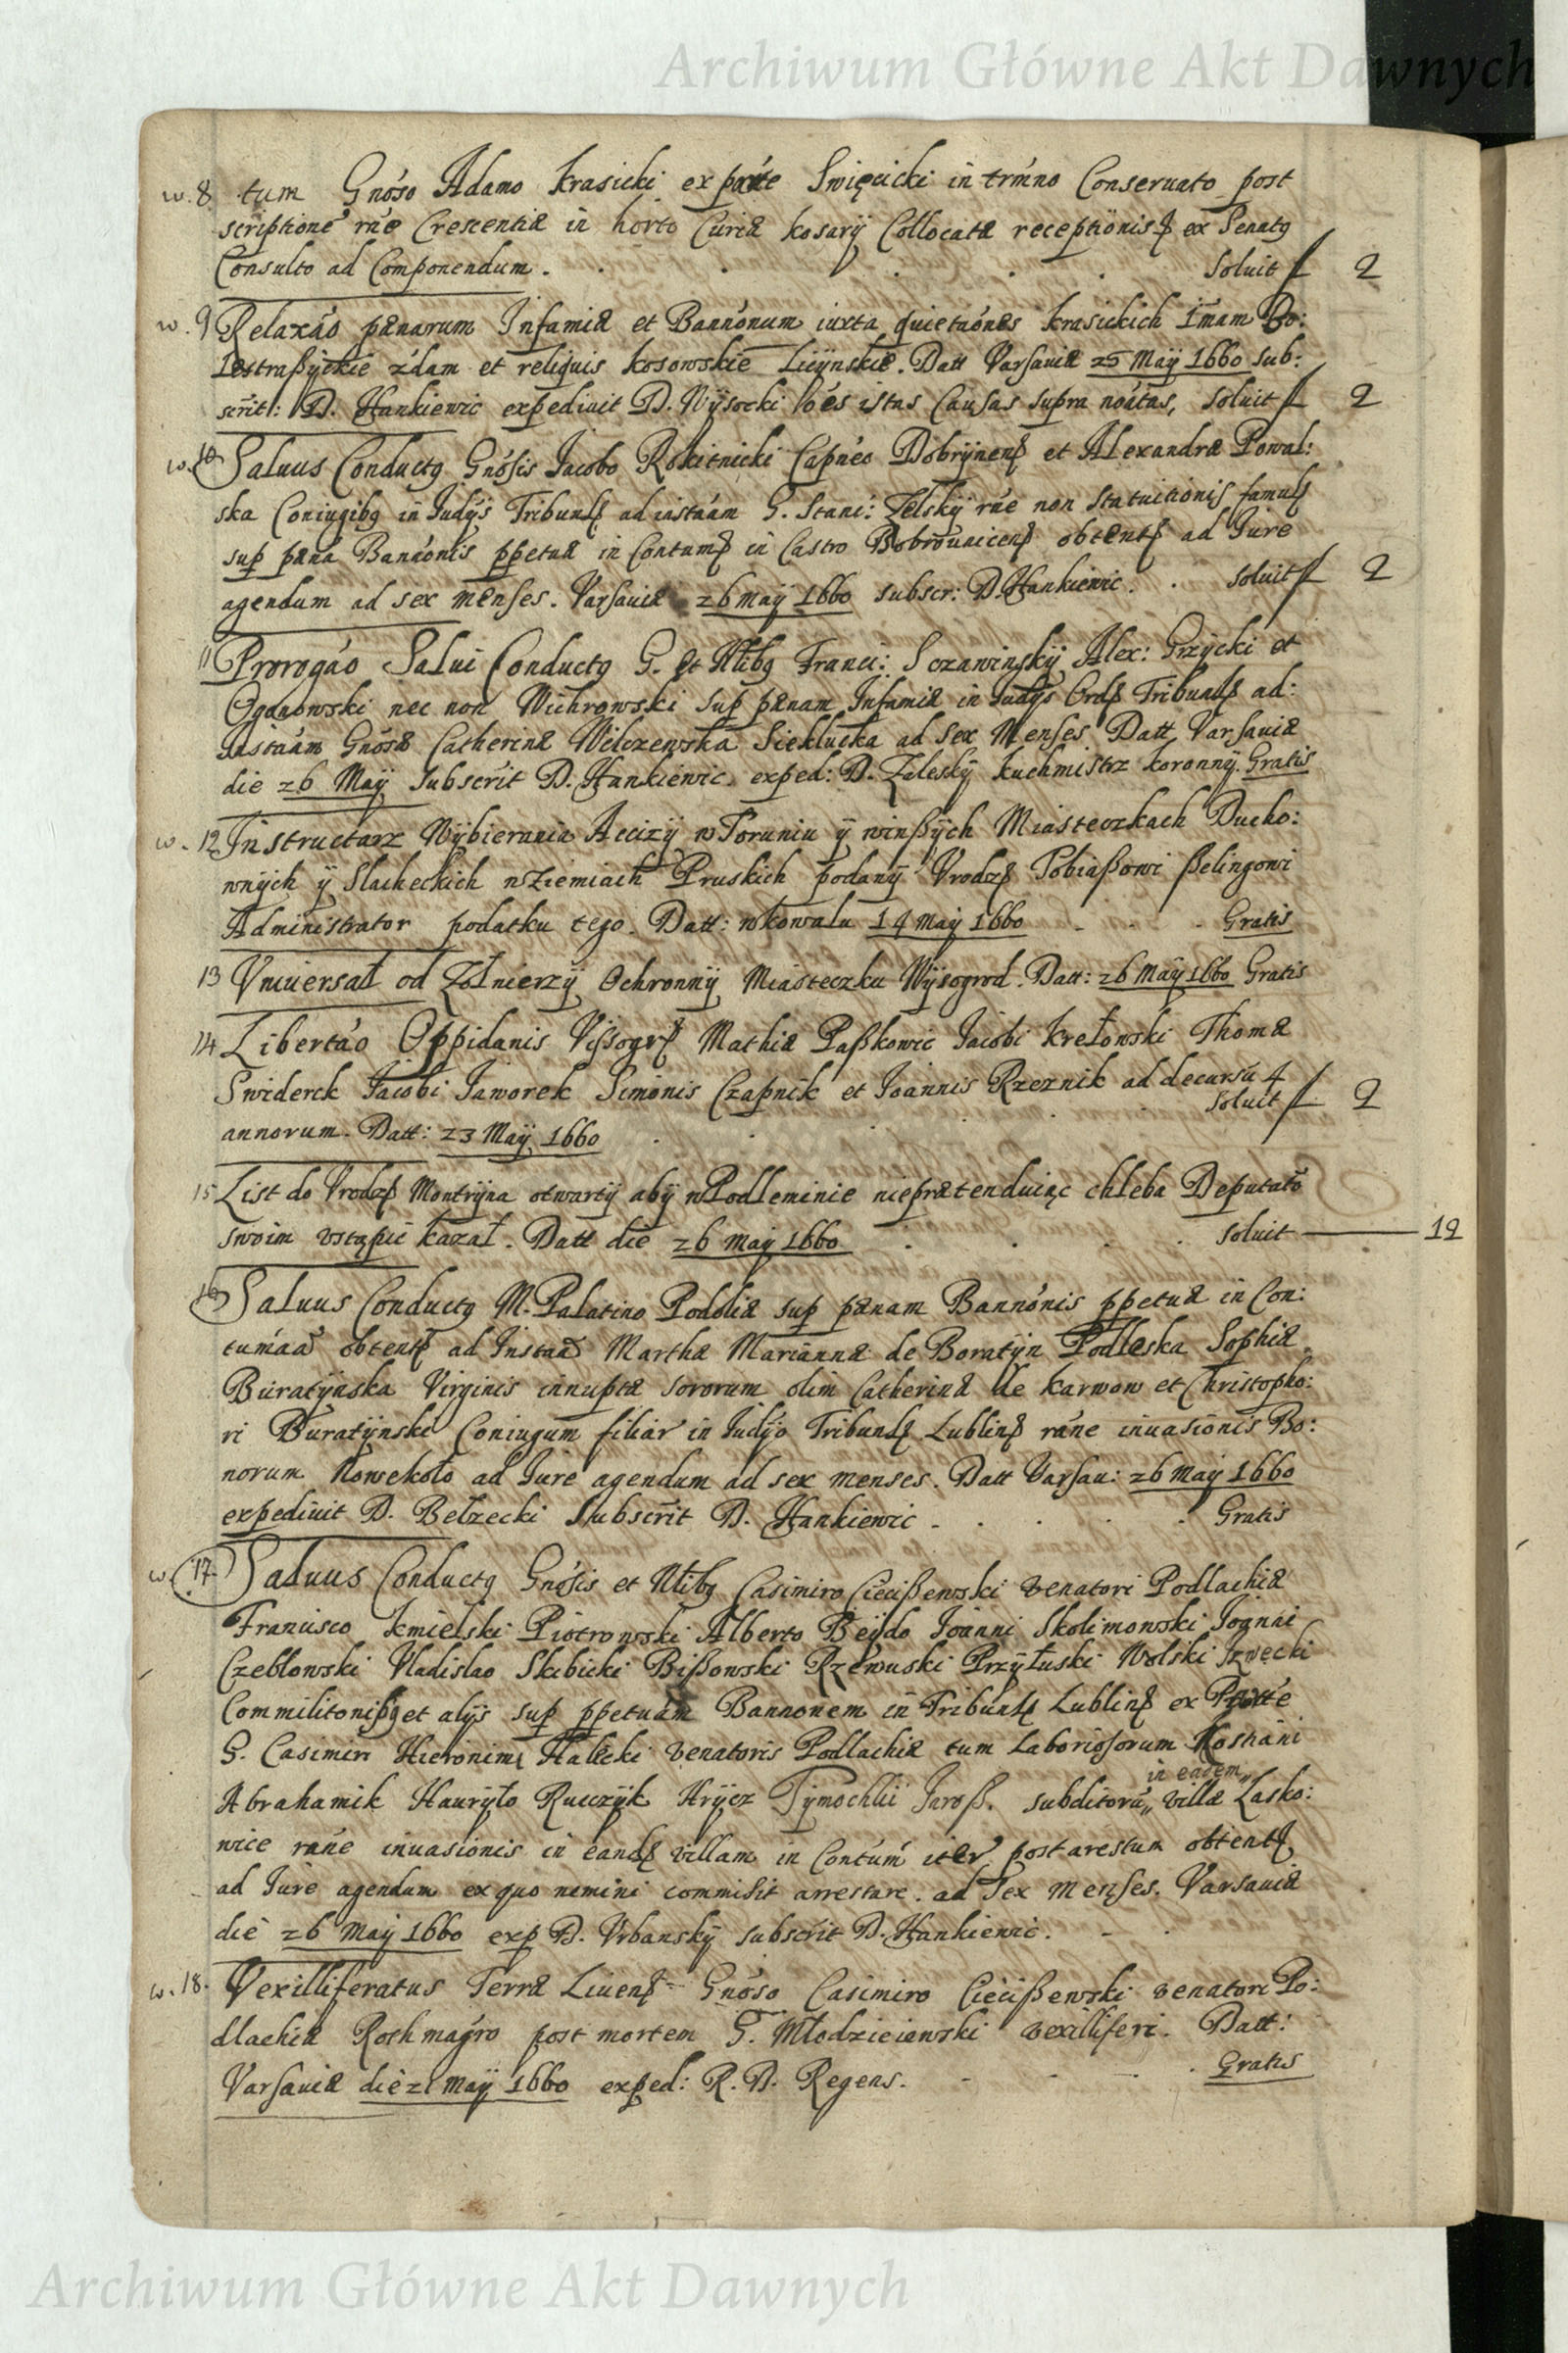 Archiwum Główne Akt Dawnych
w. 8 tum Gnóso Adamo Krasicki ex parte Swięcicki in trmno Conseruato post
scriptione rne Crescentiæ in horto Curiæ Kosarÿ Collocatæ receptionisq ex Senatq
Consulto ad Componendum . . . . . . Soluit f 2
w. 9 Relaxáo pænarum Infamiæ et Bannónum iuxta quietaónes Krasickich Imam Bo:
lestraßÿckie zdam et reliquis Kosowskie Liczÿnskie. Datt Varsauiæ 25 Maÿ 1660 sub:
scrit: D. Hankiewic expediuit D. Wÿsocki oés istas Causas supra noátas, Soluit f 2
w. 10 Saluus Conductq Gnósis Jacobo Rokitnicki Capneo Dobrÿnens et Alexandræ Powal:
ska Coniugibq in Judÿs Tribunls ad instaám G. Stani: Zelskÿ rne non Statuitionis famuls
sup pæna Bannónis ppetuæ in Contum in Castro Bobrounicens obtent ad Jure
agendum ad sex menses. Varsauiæ 26 maÿ 1660 subscr: D. Hankiewic. . Soluit f 2
11 Prorogáo Salui Conductq G. et Nlibq Franci: Sczawinskÿ Alex: Grzÿcki et
Oganowski nec non Wichrowski sup pænam Infamiæ in Judÿs Ords Tribunals ad:
instaám Gnósæ Catherinæ Wilczewska Siekłucka ad sex Menses Datt Varsauiæ
die 26 Maÿ Subscrit D. Hankiewic. exped: D. Zeleskÿ Kuchmistrz Koronnÿ. Gratis
w. 12 Instructarz Wÿbierania Accizÿ w Toruniu ÿ winßÿch Miasteczkach Ducho:
wnÿch ÿ Slacheckich w Ziemiach Pruskich podanÿ Vrodz Tobiaßowi ßelingowi
Administrator podatku tego. Datt: w Kowalu 14 Maÿ 1660 . . . Gratis
13 Vniuersał od Żołnierzÿ Ochronnÿ Miasteczku Wÿsogrod. Datt: 26 Maÿ 1660 Gratis
14 Libertáo Oppidanis Vissogr Mathiæ Paßkowic Jacobi Krełowski Thomæ
Swiderck Jacobi Jaworek Simonis Czapnik et Joannis Rzeznik ad decursu 4
annorum. Datt: 23 Maÿ 1660 . . . . Soluit f 2
15 List do Vrodz Montrÿna otwartÿ abÿ w Podleminie nieprætenduiąc chleba Deputato
swoim vstąpić kazał. Datt die 26 maÿ 1660 . . . . Soluit — 12
16 Saluus Conductq M. Palatino Podoliæ sup pænam Bannónis ppetuæ in Con:
tumáa obtent ad Instaa Marthæ Mariannæ de Boratÿn Podleska Sophiæ
Buratÿnska Virginis innuptæ sororum olim Catherinæ de Karwow et Christopho:
ri Buratÿnski Coniugum filiar in Judÿo Tribunls Lublins rane inuasionis Bo:
norum Nowekoło ad Jure agendum ad sex menses. Datt Varsau: 26 Maÿ 1660
expediuit D. Bełzecki Subscrit D. Hankiewic . . . . . Gratis
w. 17. Saluus Conductq Gnósis et Nlibq Casimiro Ciecißewski venatori Podlachiæ
Francisco Kmielski Piotrowski Alberto Beÿdo Joanni Skolimowski Jgnaci
Czeblowski Vladislao Skibicki Bißowski Rzewuski Przÿłuski Wolski
Commilitonibq et alÿs sup ppetuam Bannonem in Tribunls Lublins ex Parte
G. Casimiri Hieronimi Halecki venatoris Podlachiæ tum Laboriosorum
Abrahamik Haurÿło Ruczÿk Hrÿcz Tÿmochlii Jaroß. subditoru in eadem villæ Lasko:
wice rane inuasionis in eand villam in Contúm iter post arestum obtent
ad Jure agendum ex quo nemini commisit arrestare. ad Sex Menses. Varsauiæ
die 26 Maÿ 1660 exp D. Vrbanskÿ subscrit D. Hankiewic. . .
w. 18. Vexilliferatus Terræ Liuens Gnóso Casimiro Ciecißewski venatori Po:
dlachiæ Rothmagro post mortem G. Młodzieiewski vexilliferi. Datt:
Varsauiæ die 21 Maÿ 1660 exped: R. D. Regens. . . . Gratis
Archiwum Główne Akt Dawnych